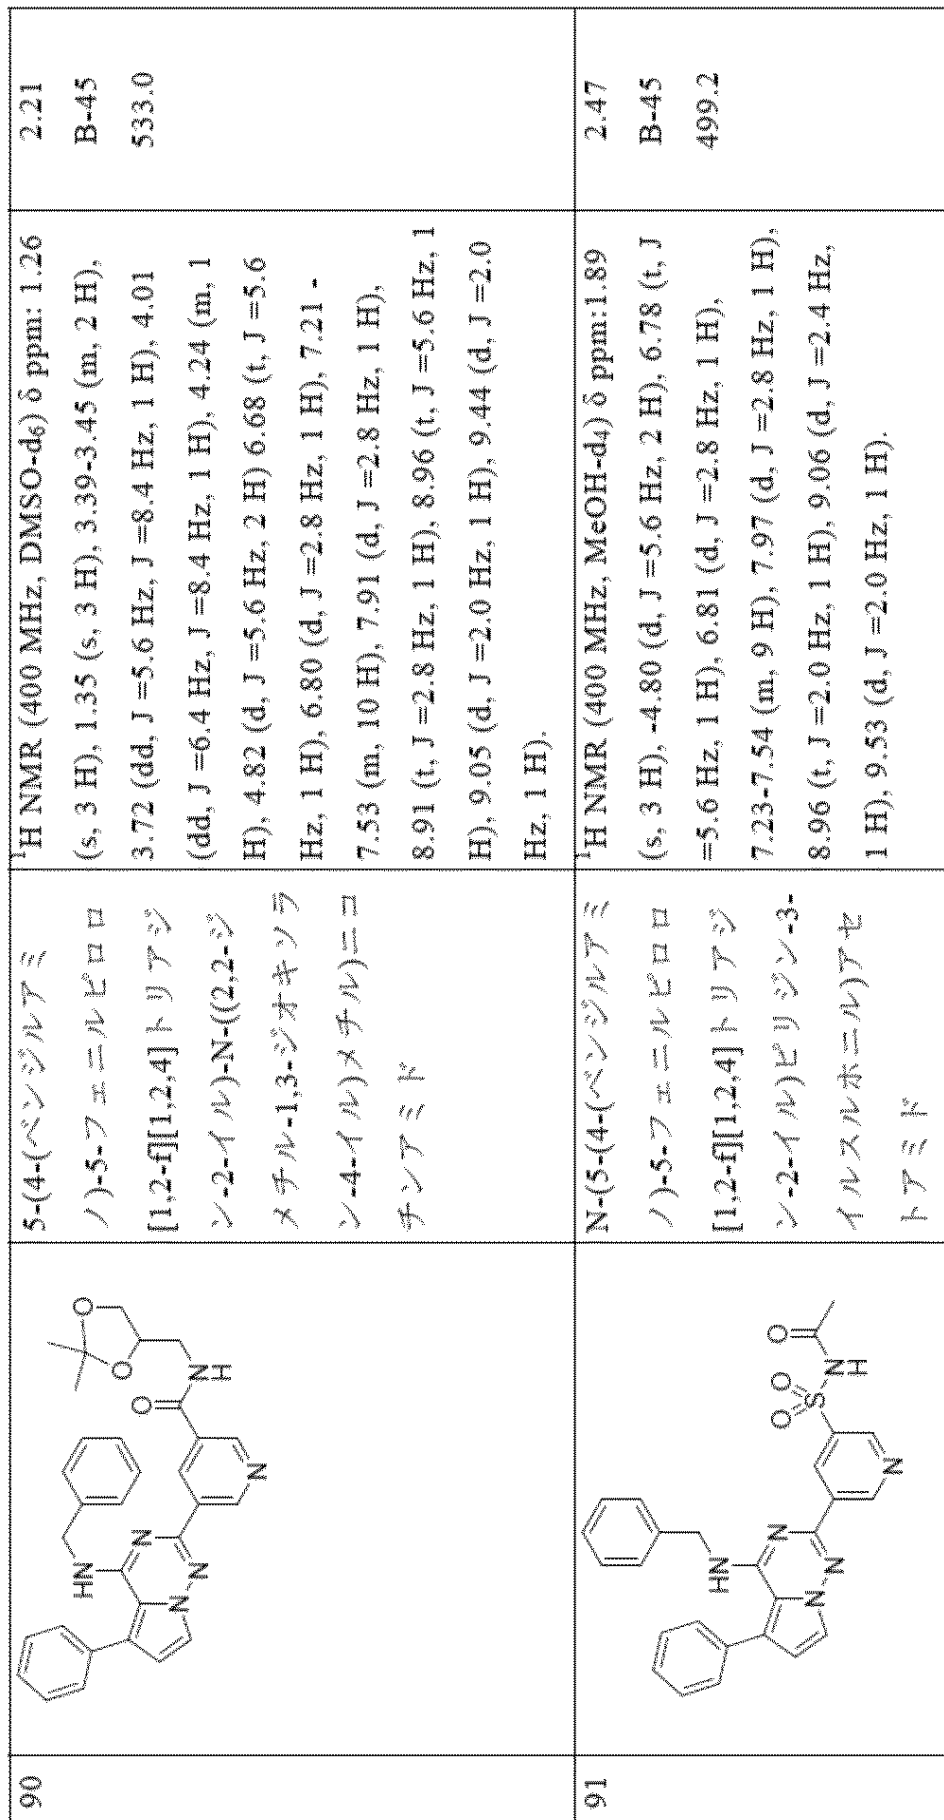 90
5-(4-(ベンジルアミ
ノ)-5-フェニルピロロ
[1,2-f][1,2,4]トリアジ
ン-2-イル)-N-((2,2-ジ
メチル-1,3-ジオキソラ
ン-4-イル)メチル)ニコ
チンアミド
¹H NMR (400 MHz, DMSO-d₆) δ ppm: 1.26
(s, 3 H), 1.35 (s, 3 H), 3.39-3.45 (m, 2 H),
3.72 (dd, J =5.6 Hz, J =8.4 Hz, 1 H), 4.01
(dd, J =6.4 Hz, J =8.4 Hz, 1 H), 4.24 (m, 1
H), 4.82 (d, J =5.6 Hz, 2 H) 6.68 (t, J =5.6
Hz, 1 H), 6.80 (d, J =2.8 Hz, 1 H), 7.21 -
7.53 (m, 10 H), 7.91 (d, J =2.8 Hz, 1 H),
8.91 (t, J =2.8 Hz, 1 H), 8.96 (t, J =5.6 Hz, 1
H), 9.05 (d, J =2.0 Hz, 1 H), 9.44 (d, J =2.0
Hz, 1 H).
2.21
B-45
533.0
HN
N
N
N
N
O
N
H
O
O
91
N-(5-(4-(ベンジルアミ
ノ)-5-フェニルピロロ
[1,2-f][1,2,4]トリアジ
ン-2-イル)ピリジン-3-
イルスルホニル)アセ
トアミド
¹H NMR (400 MHz, MeOH-d₄) δ ppm:1.89
(s, 3 H), -4.80 (d, J =5.6 Hz, 2 H), 6.78 (t, J
=5.6 Hz, 1 H), 6.81 (d, J =2.8 Hz, 1 H),
7.23-7.54 (m, 9 H), 7.97 (d, J =2.8 Hz, 1 H),
8.96 (t, J =2.0 Hz, 1 H), 9.06 (d, J =2.4 Hz,
1 H), 9.53 (d, J =2.0 Hz, 1 H).
2.47
B-45
499.2
HN
N
N
N
N
O
O
S
N
H
O